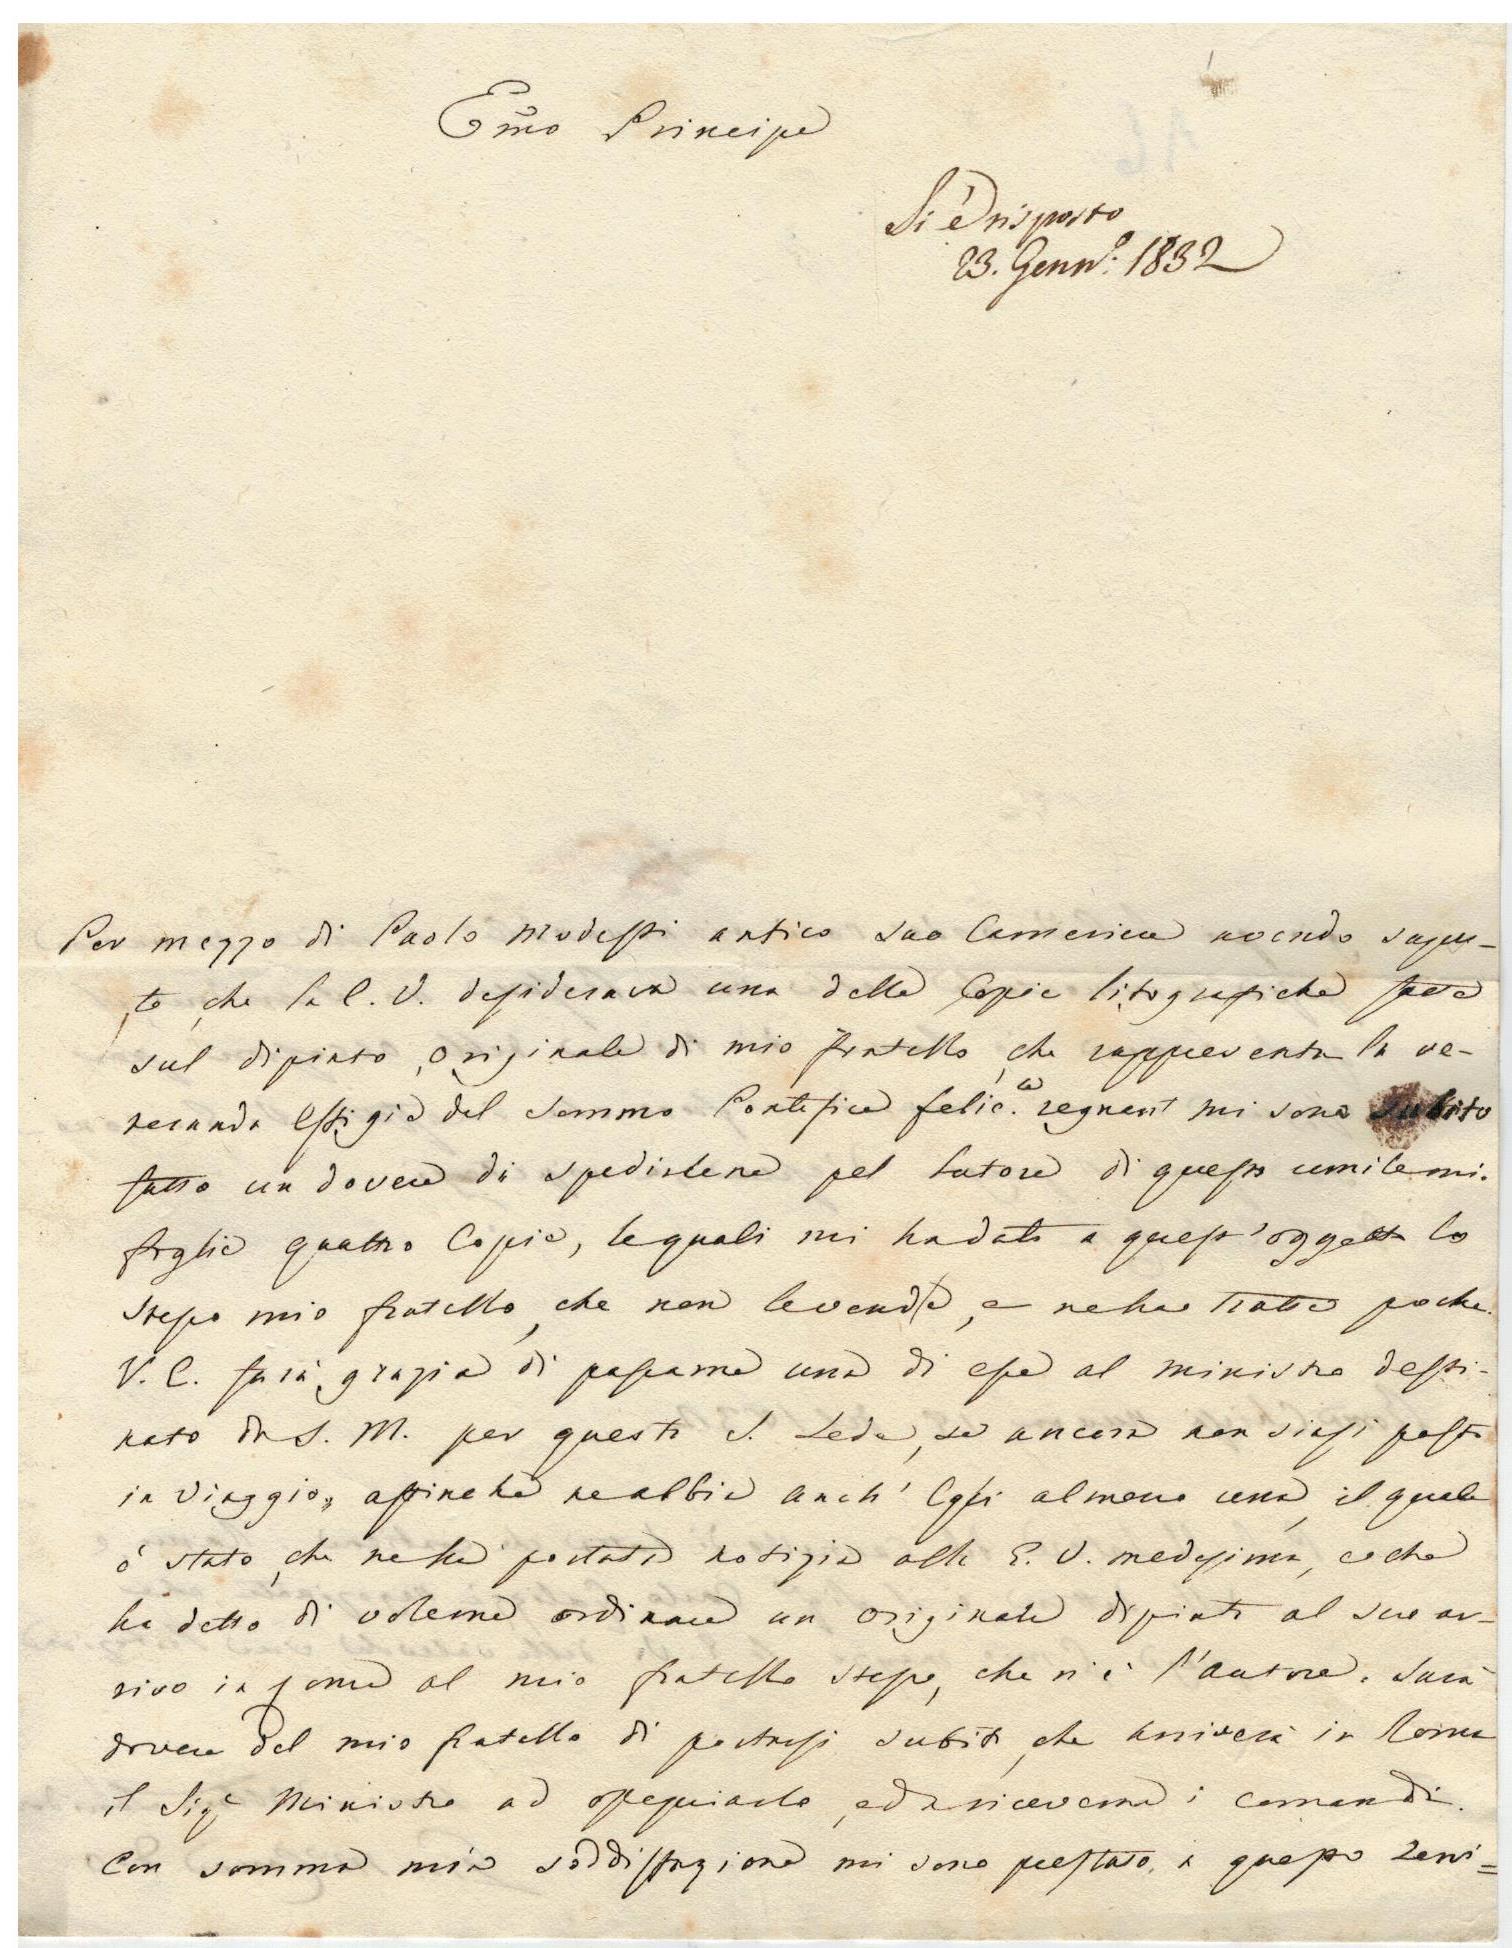 Emo Principe
Si è risposto
23. Genn.o 1832
Per mezzo di Paolo Modesti antico suo Cameriere avendo sapu-
to, che la E. V. desiderava una delle Copie litografiche fatte
sul dipinto originale di mio fratello, che rappresenta la ve-
neranda Effigie del Sommo Pontefice felic.e regnant mi sono subito
fatto un dovere di spedirlene pel latore di questo umilemi.
foglie quattro Copie, le quali mi ha dato a quest'oggetto lo
stesso mio fratello, che non le vende, e ne ha tratte poche.
V. E. farà grazia di passarne una di esse al ministro desti-
nato da S. M. per questa S. Sede, se ancora non siasi posto
in viaggio, affinchè ne abbia anch' Egli almeno una, il quale
è stato, che ne ha portata notizia alla E. V. medesima, e che
ha detto di volerne ordinare un originale dipinto al suo ar-
rivo in Roma al mio fratello stesso, che n'è l'autore. Sarà
dovere del mio fratello di portarsi subito, che arriverà in Roma
il Sig.e Ministro ad ossequiarlo, ed a riceverne i comandi.
Con somma mia soddisfazione mi sono prestato a questo